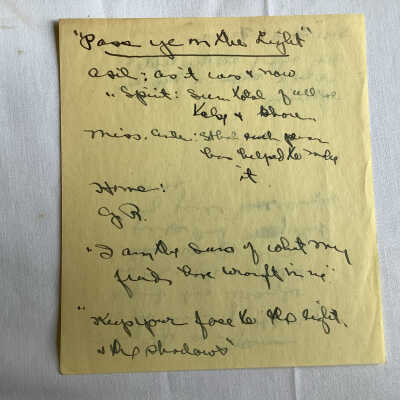 "Pass ye on the Light"
as it was & now
" Spirit: Sum total of all
& show
Miss. each person
has helped to make
it
Home:
"I am the sum of what my
friends have wrought in me"
"Keep your face to the light.
& the shadows"